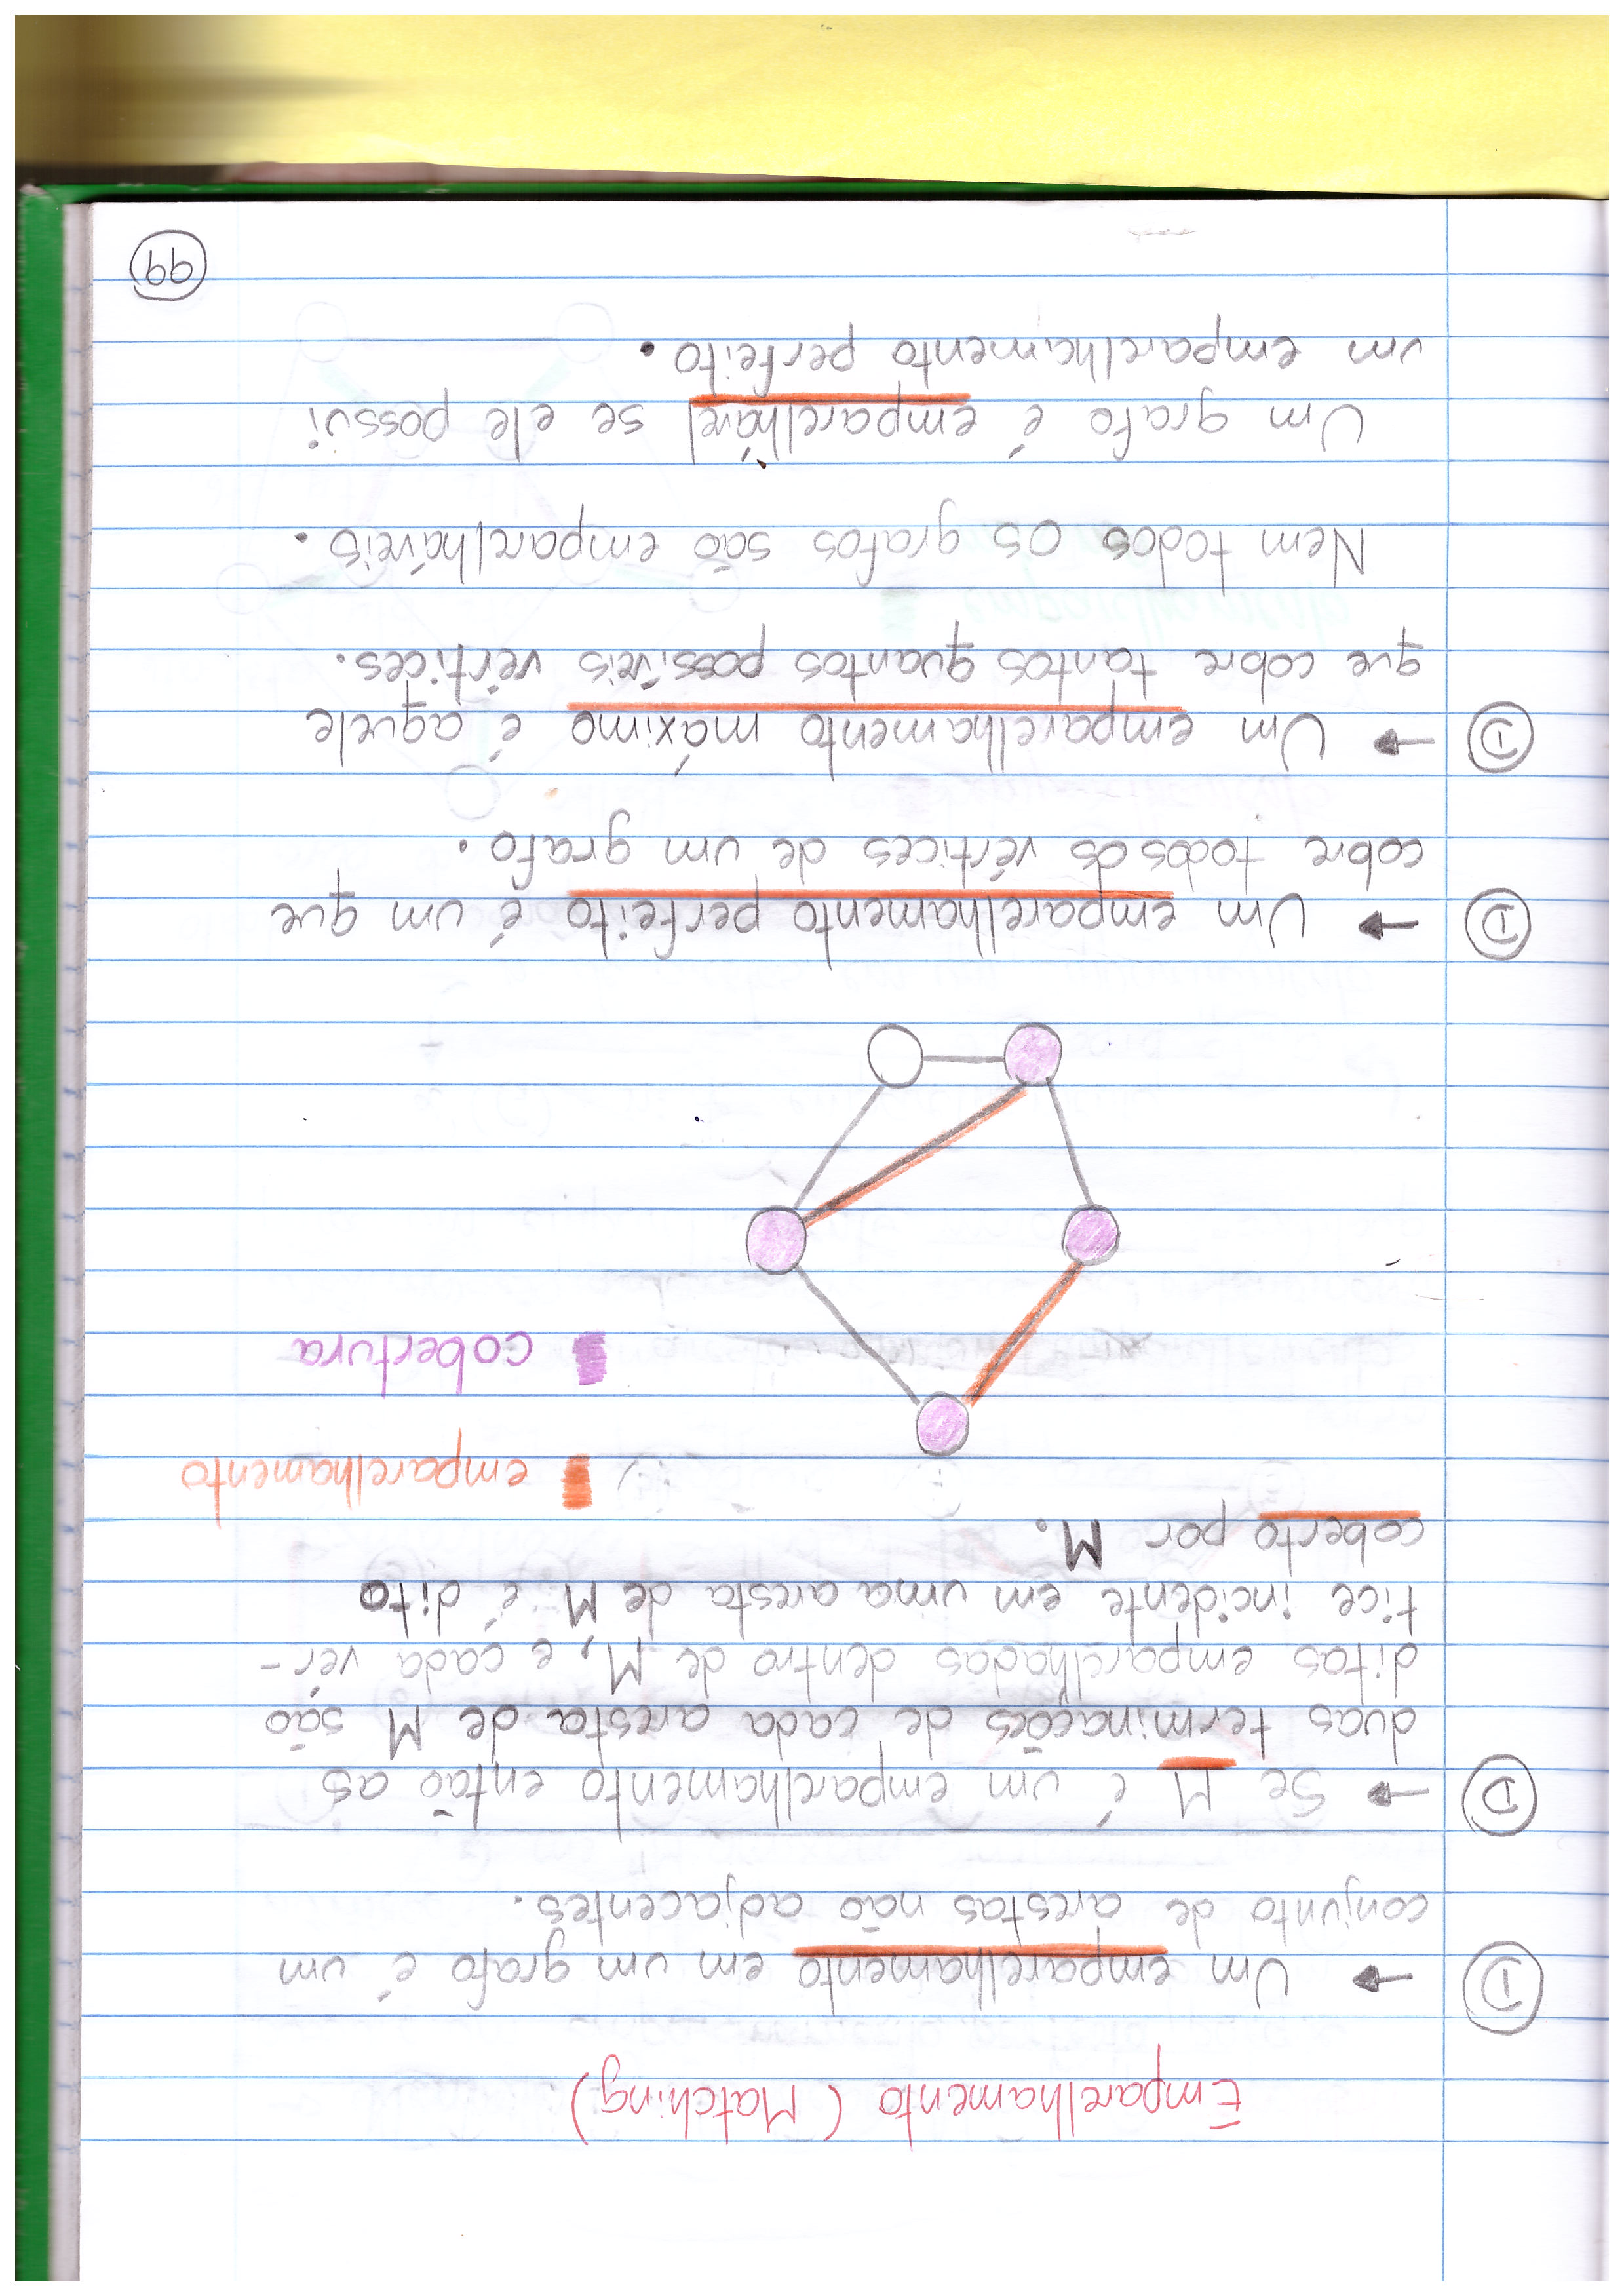 Emparelhamento (Matching)
D → Um emparelhamento em um grafo é um
conjunto de arestas não adjacentes.
D → Se M é um emparelhamento então as
duas terminações de cada aresta de M são
ditas emparelhadas dentro de M, e cada vér-
tice incidente em uma aresta de M é dito
coberto por M.
emparelhamento
cobertura
D → Um emparelhamento perfeito é um que
cobre todos os vértices de um grafo.
D → Um emparelhamento máximo é aquele
que cobre tantos quantos possíveis vértices.
Nem todos os grafos são emparelháveis.
Um grafo é emparelhável se ele possui
um emparelhamento perfeito.
99